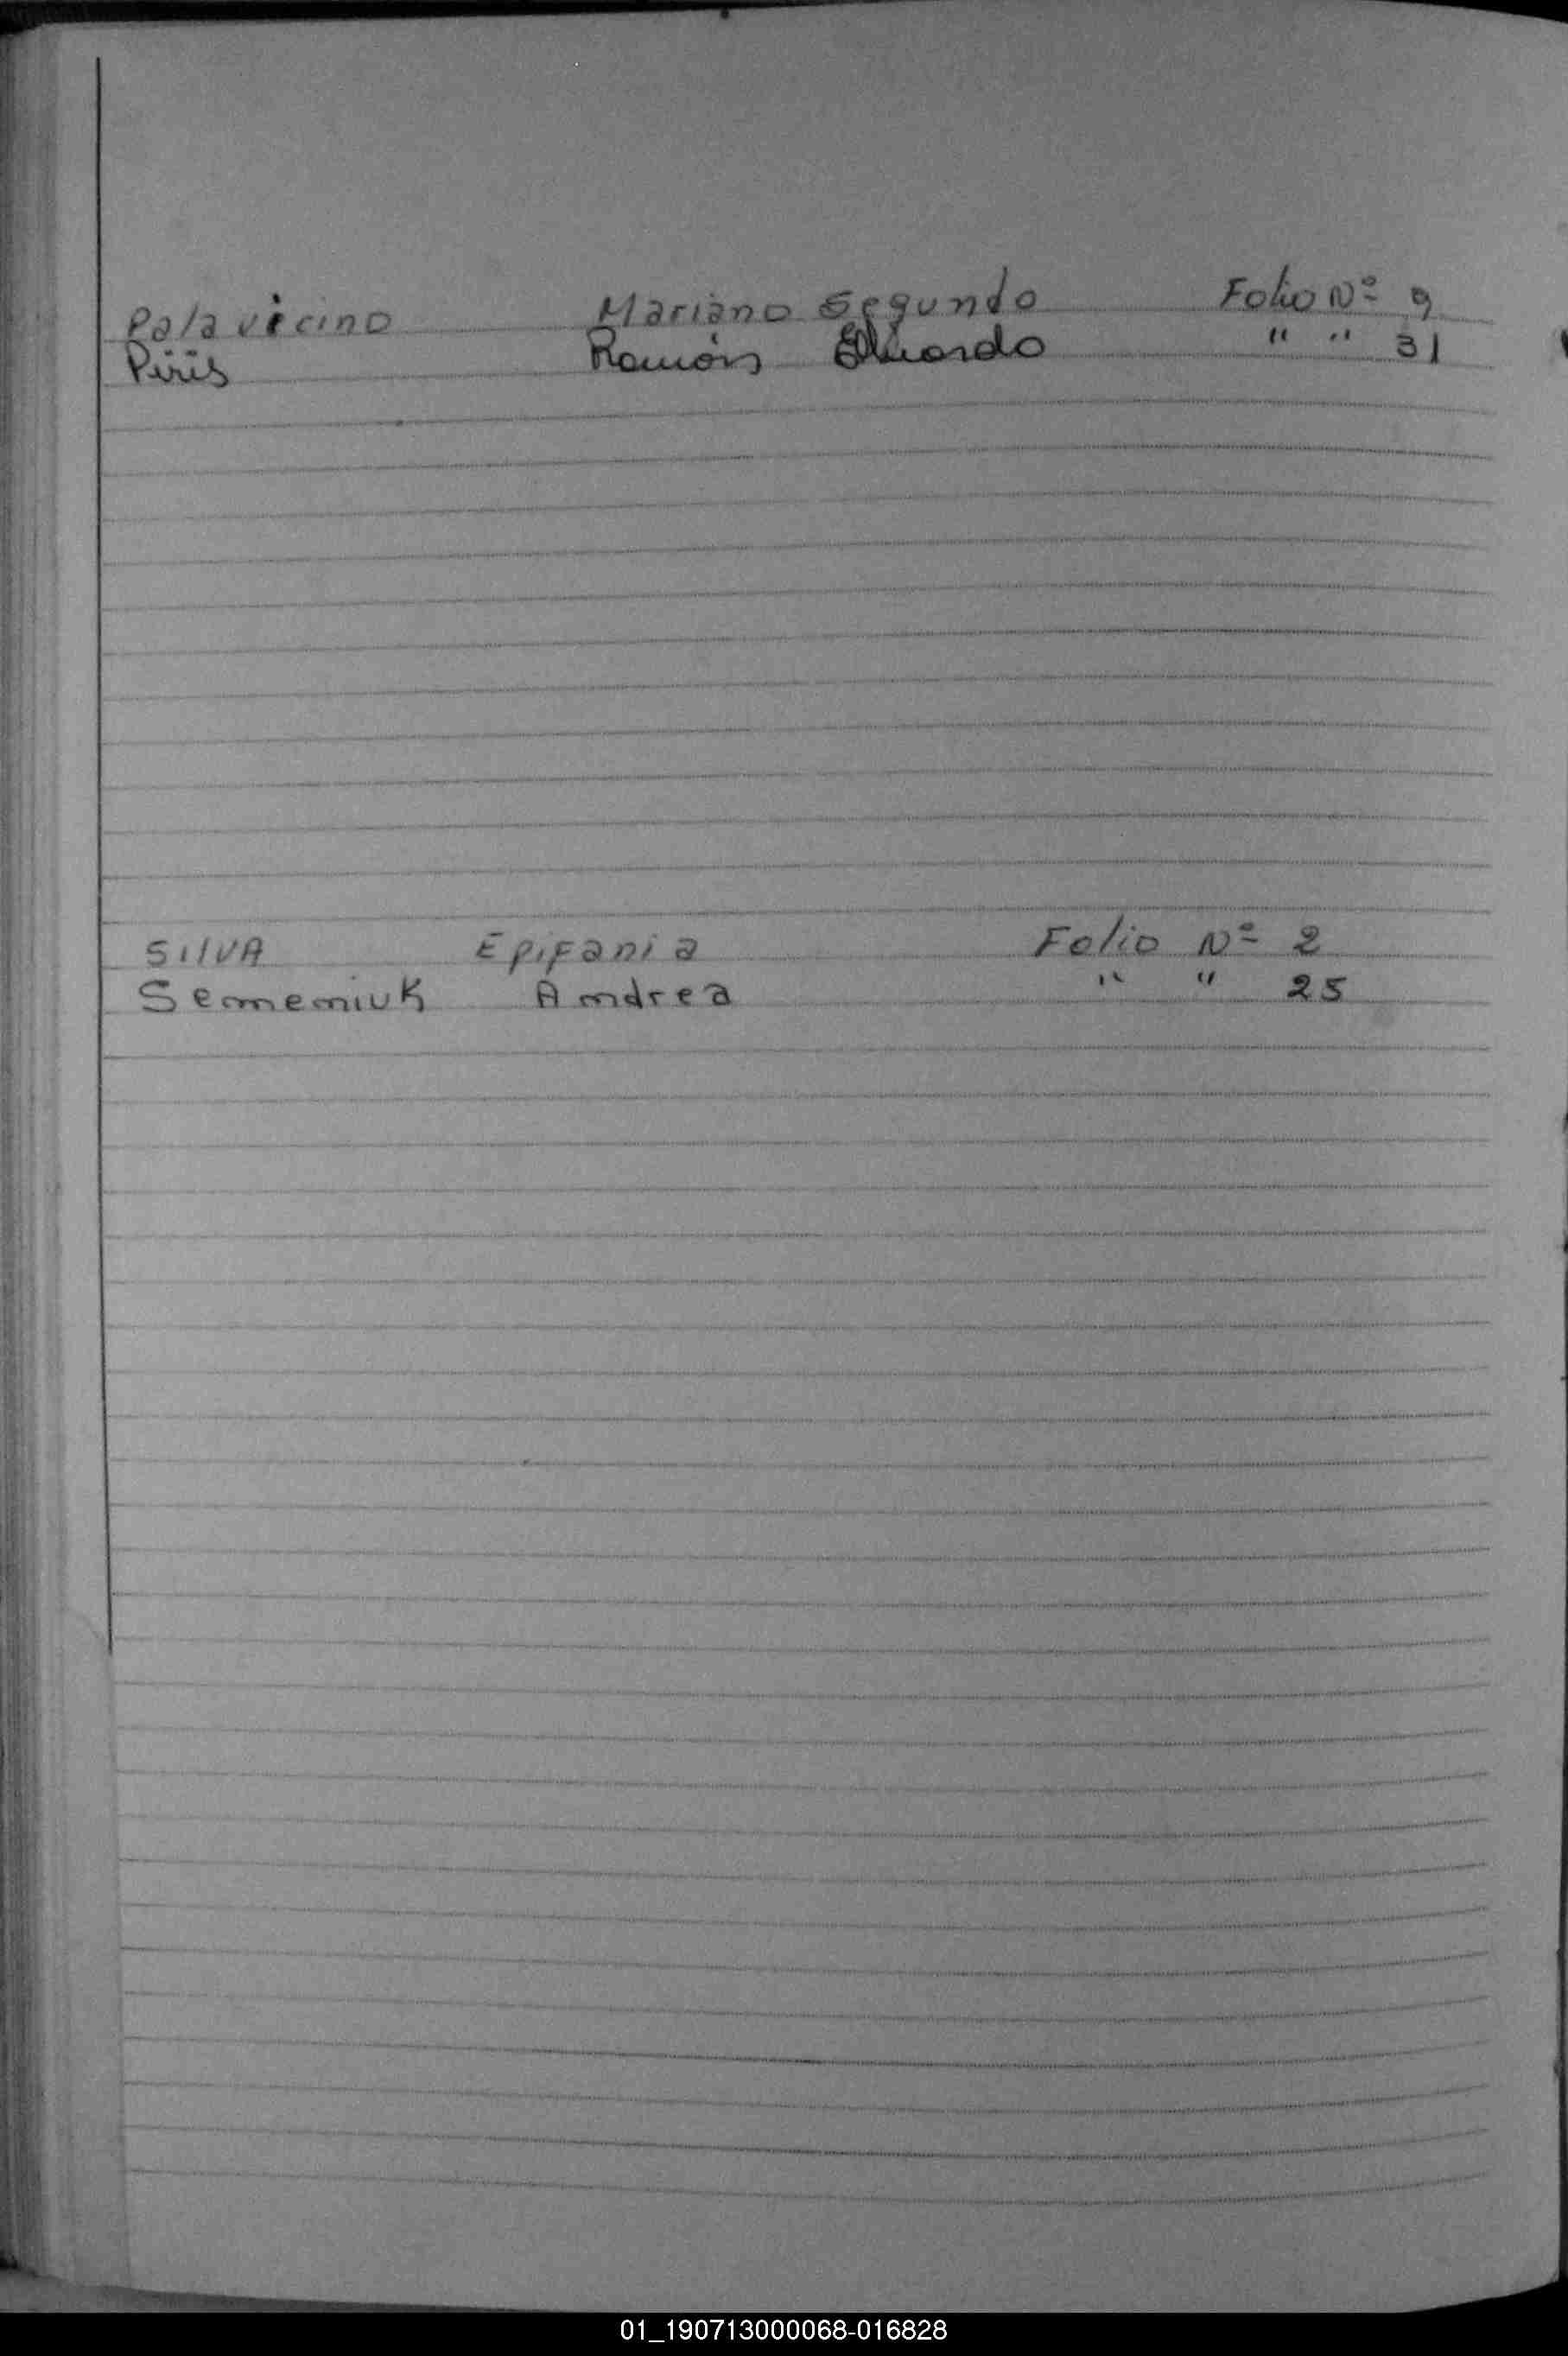 Palavicino Mariano Segundo Folio Nº 9
Piris Ramón Eduardo " " 31
SilVA Epifania Folio Nº 2
Semeniuk Andrea " " 25
01_190713000068-016828